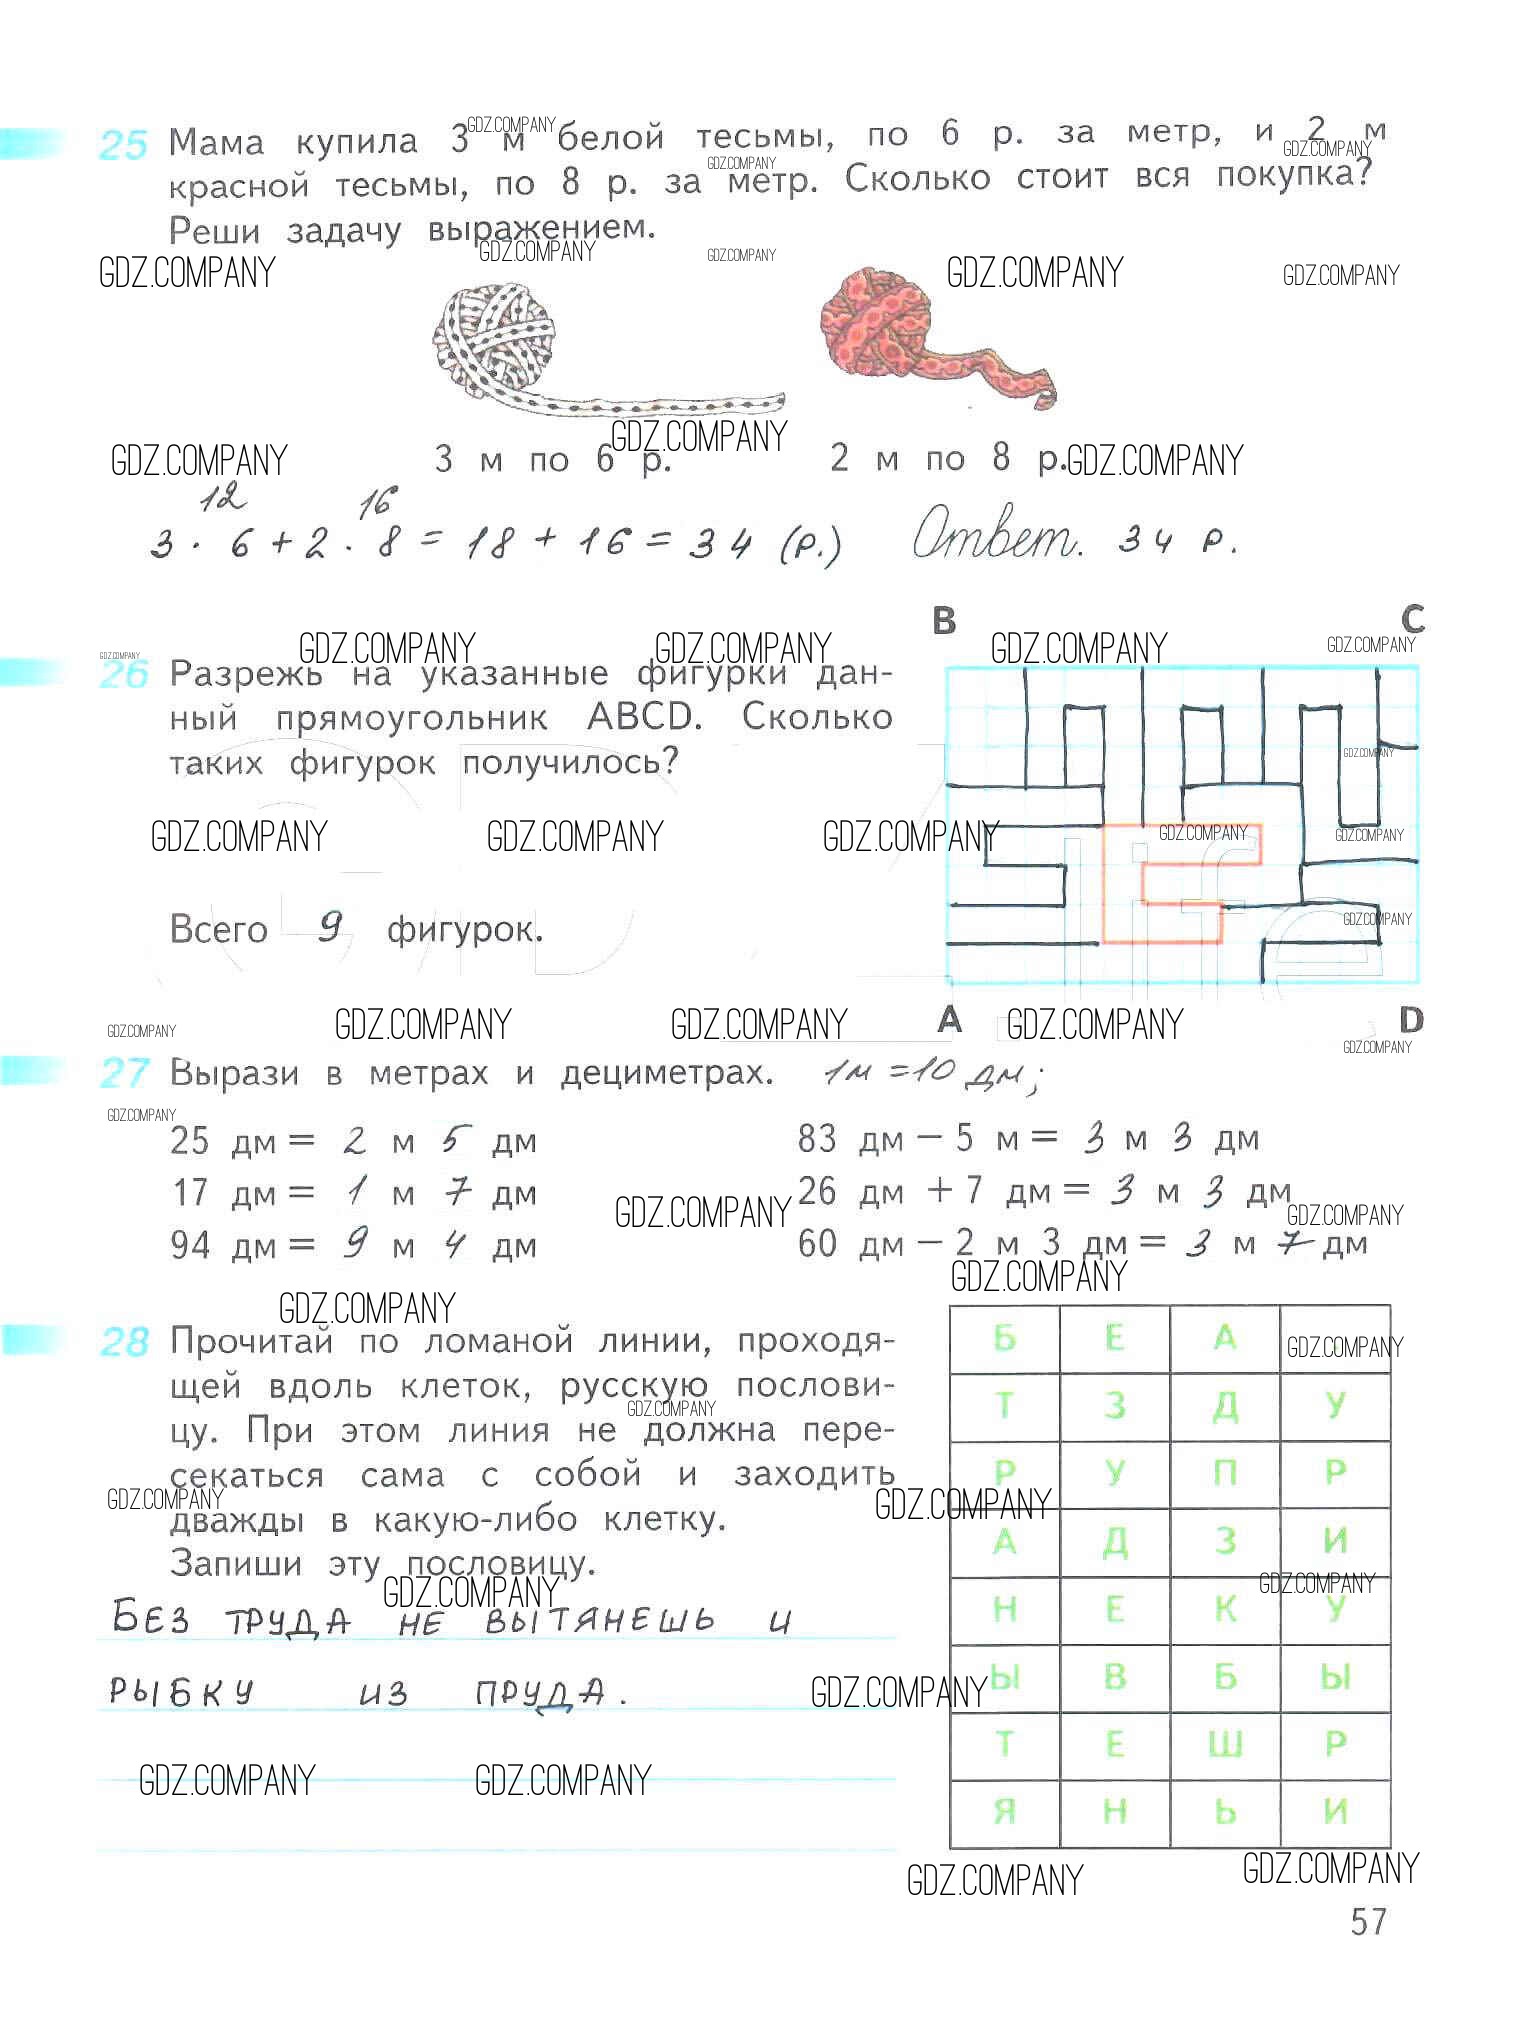 25 Мама купила 3 м белой тесьмы, по 6 р. за метр, и 2 м
красной тесьмы, по 8 р. за метр. Сколько стоит вся покупка?
Реши задачу выражением.
3 м по 6 р.
2 м по 8 р.
12 16
3 · 6 + 2 · 8 = 18 + 16 = 34 (р.) Ответ. 34 р.
B C
26 Разрежь на указанные фигурки дан-
ный прямоугольник ABCD. Сколько
таких фигурок получилось?
Всего 9 фигурок.
A D
27 Вырази в метрах и дециметрах. 1м = 10 дм;
25 дм = 2 м 5 дм
17 дм = 1 м 7 дм
94 дм = 9 м 4 дм
83 дм − 5 м = 3 м 3 дм
26 дм + 7 дм = 3 м 3 дм
60 дм − 2 м 3 дм = 3 м 7 дм
28 Прочитай по ломаной линии, проходя-
щей вдоль клеток, русскую послови-
цу. При этом линия не должна пере-
секаться сама с собой и заходить
дважды в какую-либо клетку.
Запиши эту пословицу.
БЕЗ ТРУДА НЕ ВЫТЯНЕШЬ И
РЫБКУ ИЗ ПРУДА.
Б Е А .
Т З Д У
Р У П Р
А Д З И
Н Е К У
Ы В Б Ы
Т Е Ш Р
Я Н Ь И
57
GDZ.COMPANY